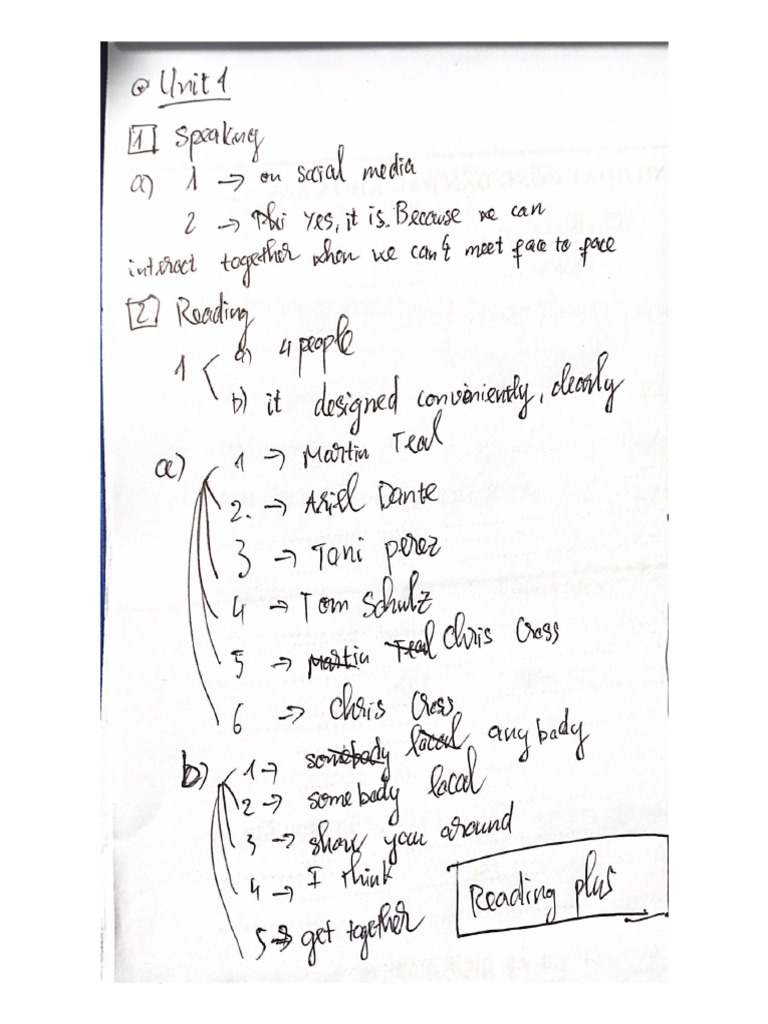 Unit 1
1 Speaking
a) 1 → on social media
2 → Yes, it is. Because we can
interact together when we can't meet face to face
2 Reading
1 a) 4 people
b) it designed conveniently, clearly
a) 1 → Martin Teal
2. → Ariel Dante
3 → Toni perez
4 → Tom Schulz
5 → Martin Teal Chris Cross
6 → Chris Cross
b) 1 → somebody local anybody
2 → somebody local
3 → show you around
4 → I think
5 → get together
Reading plus